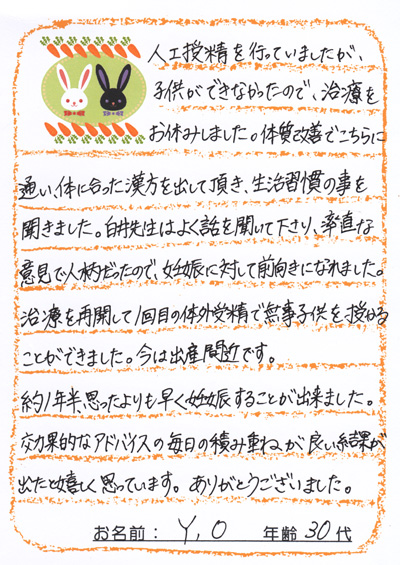 人工授精を行っていましたが、
子供ができなかったので、治療を
お休みしました。体質改善でこちらに
通い、体に合った漢方を出して頂き、生活習慣の事を
聞きました。臼井先生はよく話を聞いて下さり、率直な
意見で人柄だったので、妊娠に対して前向きになれました。
治療を再開して1回目の体外受精で無事子供を授かる
ことができました。今は出産間近です。
約1年半、思ったよりも早く妊娠することが出来ました。
効果的なアドバイスの毎日の積み重ねが良い結果が
出たと嬉しく思っています。ありがとうございました。
お名前： Y,O 年齢 30代